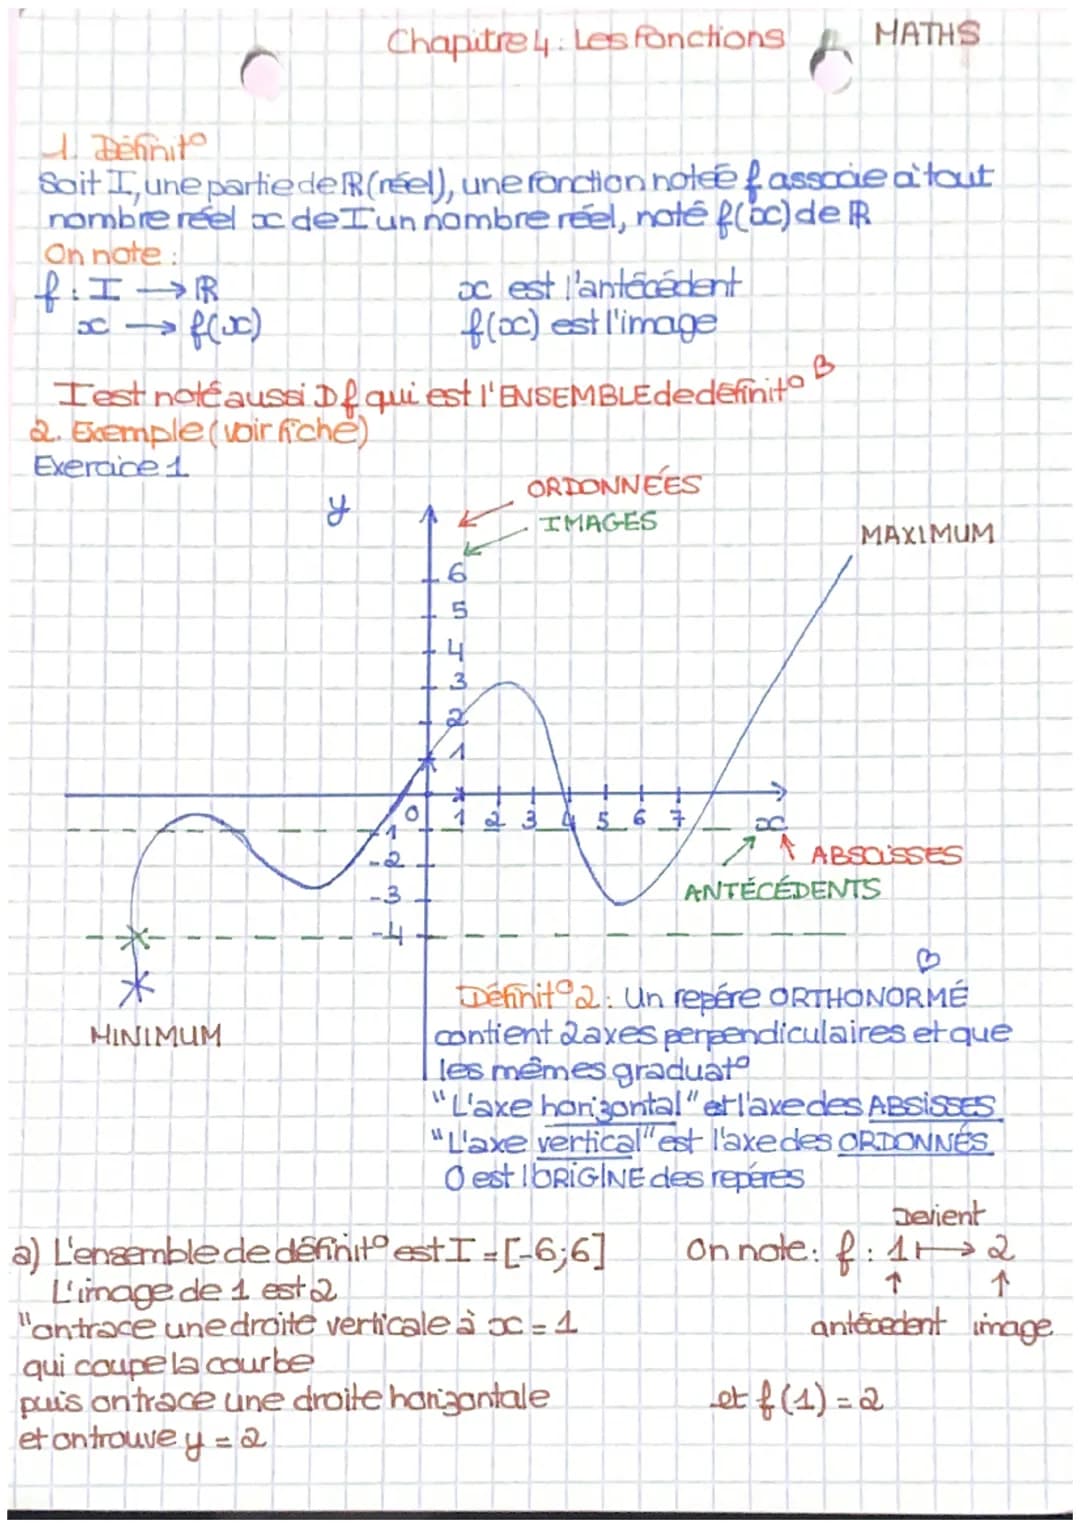 Chapitre 4 : Les fonctions MATHS
1. Définit°
Soit I, une partie de ℝ (réel), une fonction notée f associe à tout
nombre réel x de I un nombre réel, noté f(x) de ℝ
On note :
f : I → ℝ x est l'antécédent
x → f(x) f(x) est l'image
I est noté aussi Df qui est l'ENSEMBLE de définit°
2. Exemple (voir fiche)
Exercice 1
y
ORDONNÉES
IMAGES
MAXIMUM
6
5
4
3
2
1
0 1 2 3 4 5 6 7 x
-1
-2
-3
-4
ABSCISSES
ANTÉCÉDENTS
MINIMUM
Définit° 2 : Un repére ORTHONORMÉ
contient 2 axes perpendiculaires et que
les mêmes graduat°
"L'axe horizontal" et l'axe des ABSISSES
"L'axe vertical" est l'axe des ORDONNÉS
O est l'ORIGINE des repéres
Devient
a) L'ensemble de définit° est I = [-6;6] On note : f : 1 ↦ 2
L'image de 1 est 2 ↑ ↑
"on trace une droite verticale à x = 1 antécedent image
qui coupe la courbe
puis on trace une droite horizontale et f(1) = 2
et on trouve y = 2